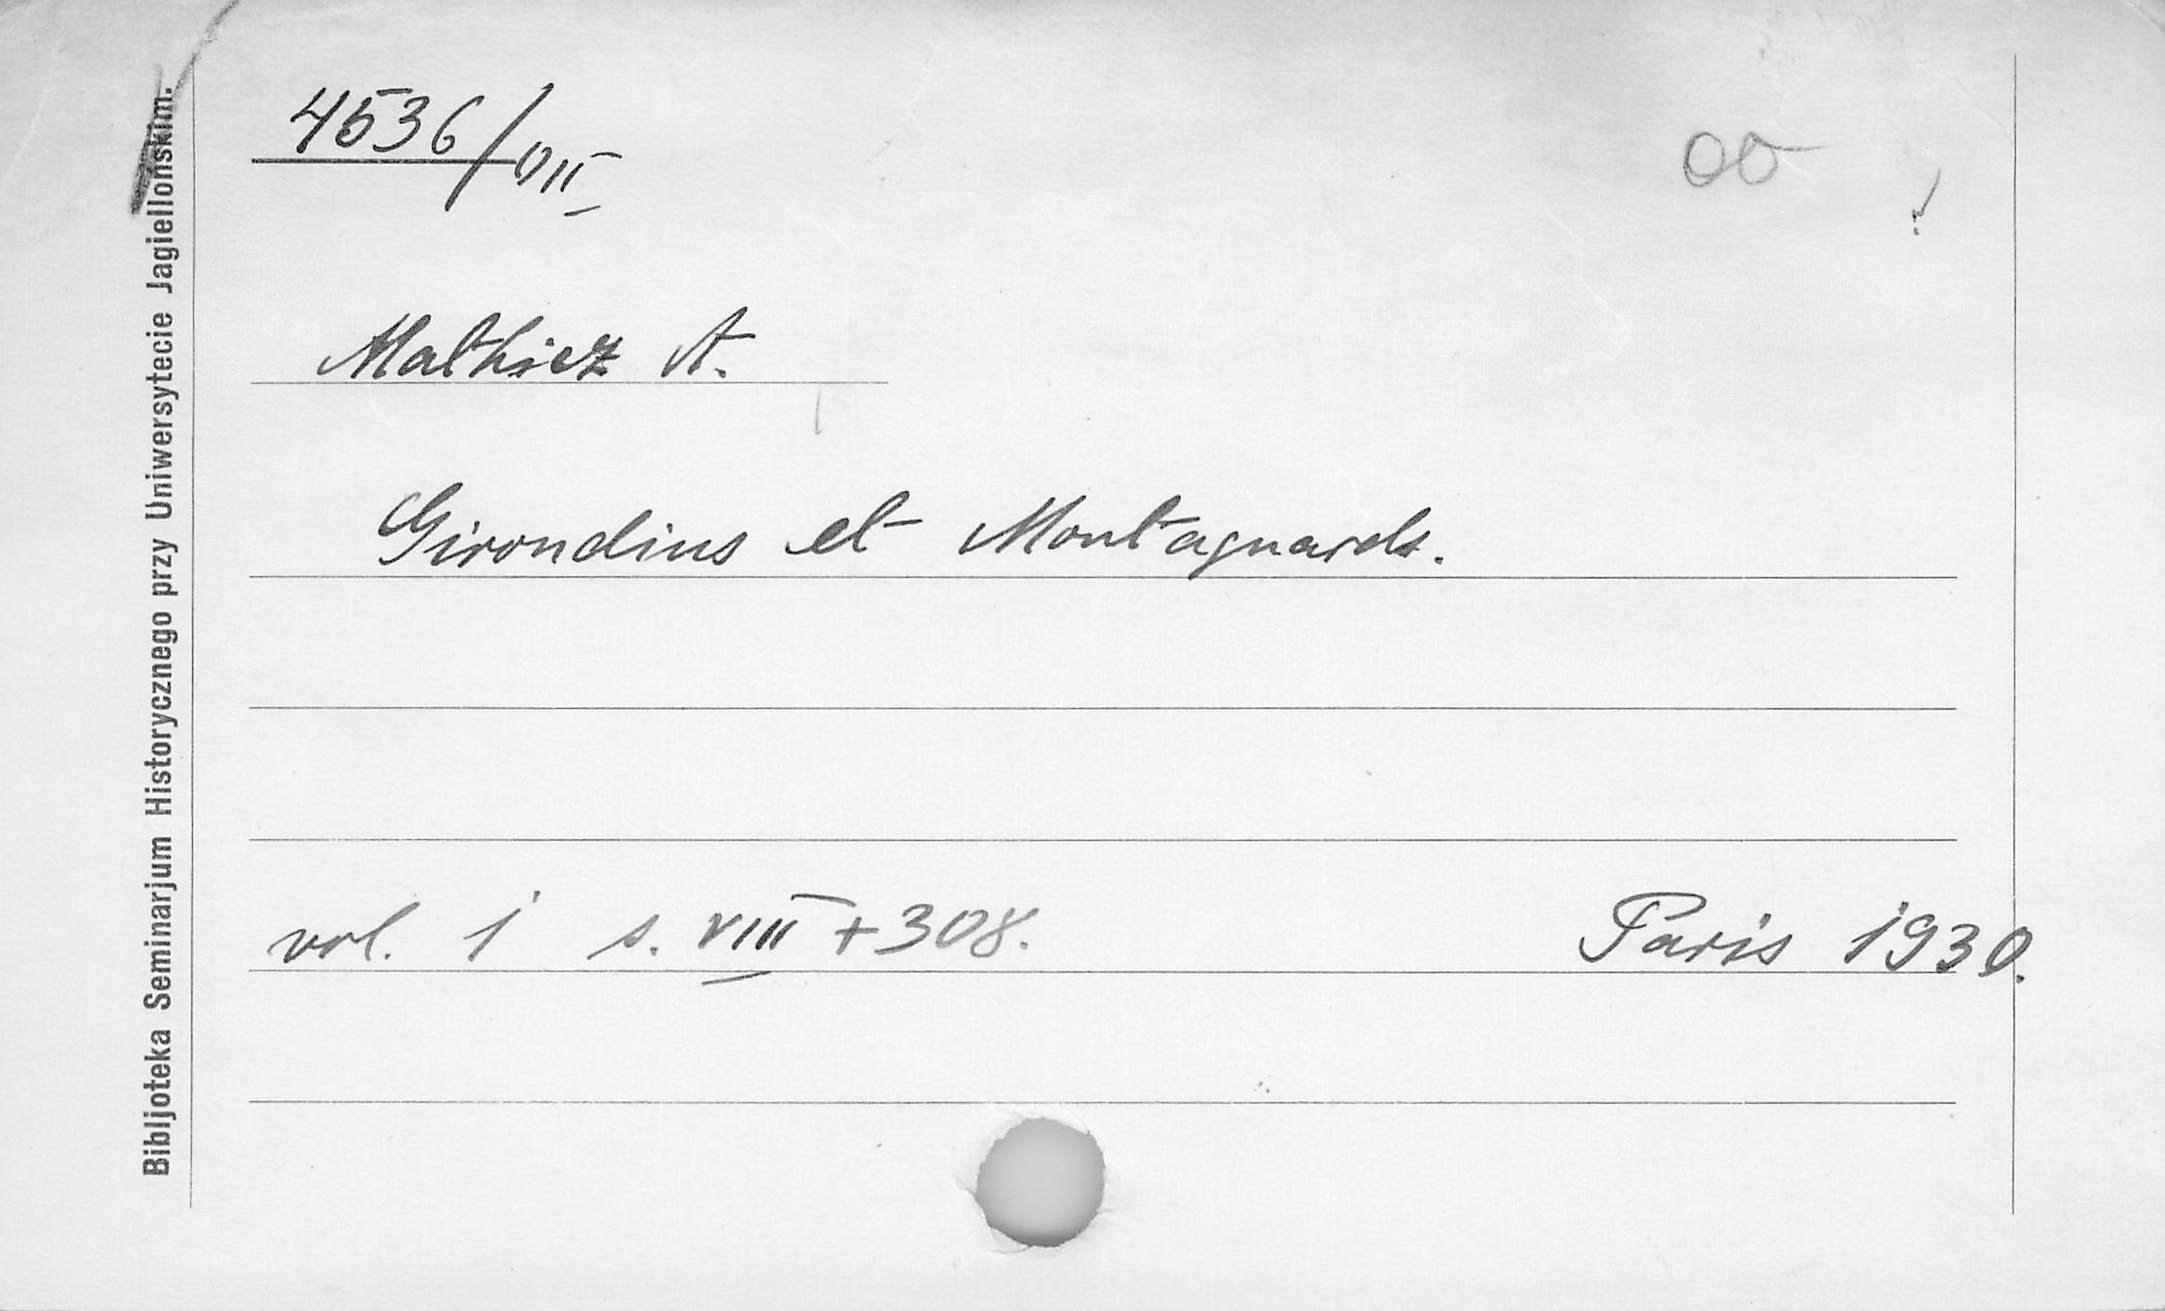 4536/VII
00
Mathiez A.
Girondins et Montagnards.
vol. 1 s. VIII + 308. Paris 1930.
Bibljoteka Seminarjum Historycznego przy Uniwersytecie Jagiellońskim.